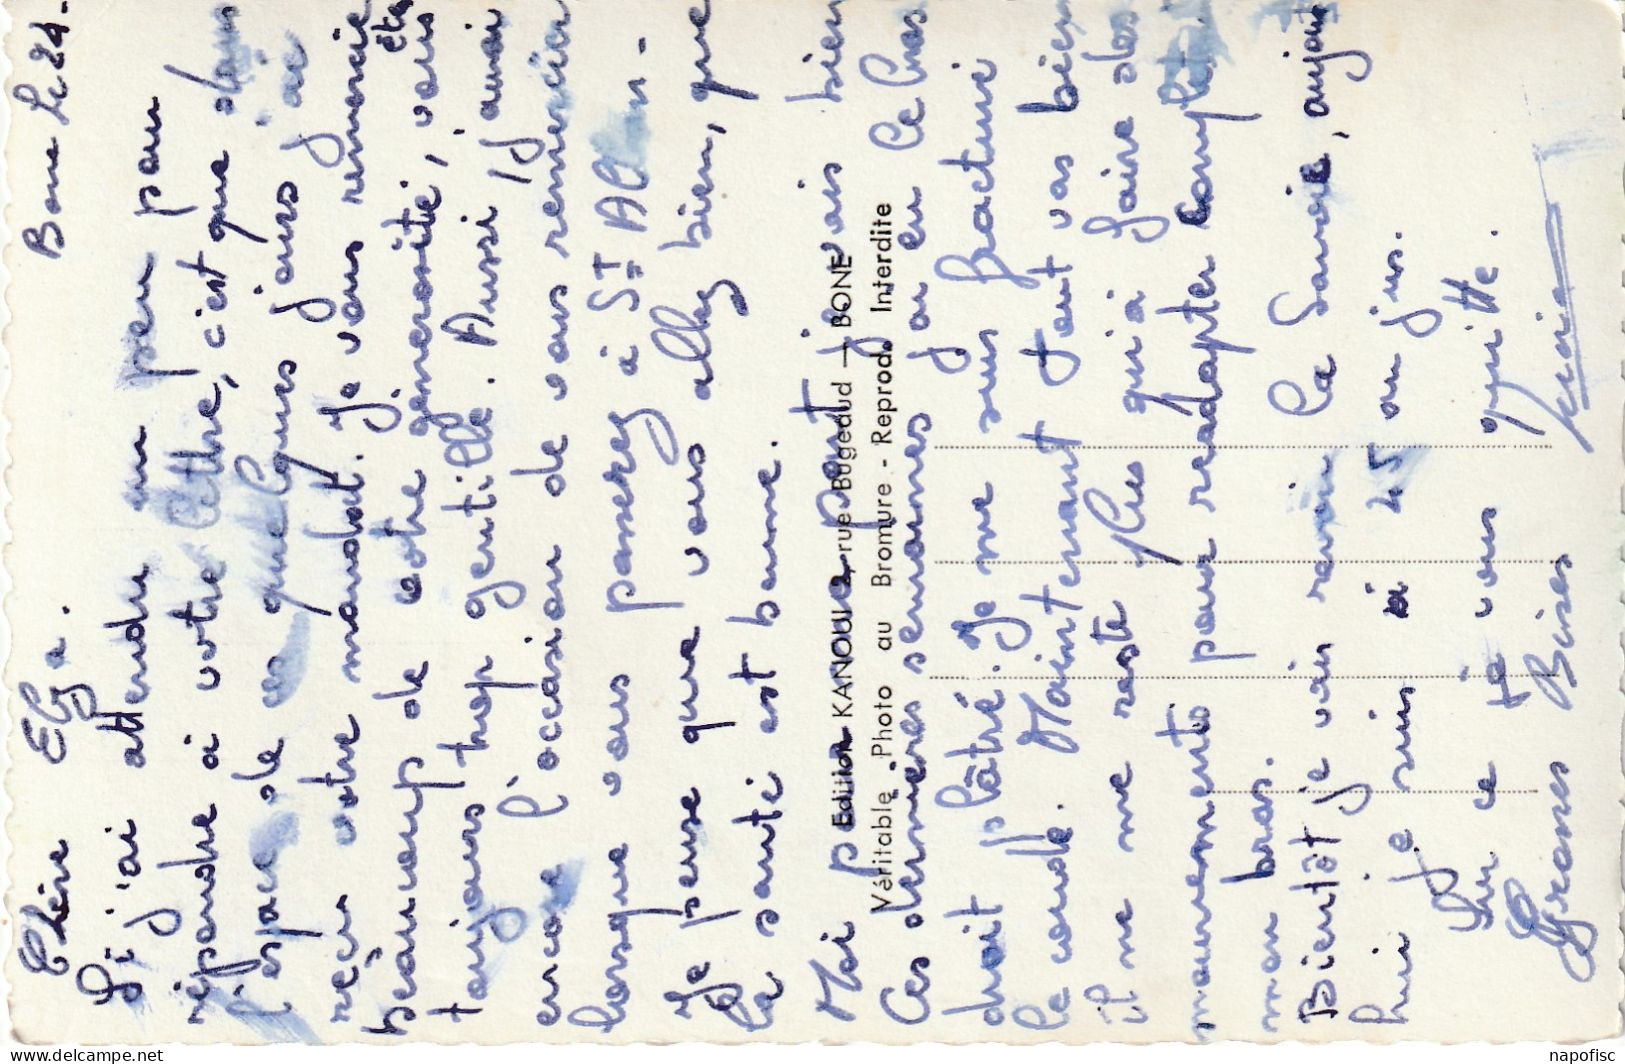 Bone le 24.
Chère Elya.
Si j'ai attendu un peu pour
répondre à votre lettre, c'est que dans
l'espace de ces quelques jours j'ai
reçu votre mandat. Je vous remercie
beaucoup de votre générosité, vous êtes
toujours trop gentille. Aussi j'aurai
encore l'occasion de vous remercier
lorsque vous passerez à St Al -
Je pense que vous allez bien, que
la santé est bonne.
Moi pour ma part je vais bien
Ces dernières semaines j'ai eu le bras
droit plâtré. Je me suis fracturé
le coude. Maintenant tout vas bien
il me reste plus qui à faire des
mouvements pour réadapter complet.
mon bras.
Bientôt je vais revoir la Savoie, aujour
hui je suis à 45 au jus.
Sur ce je vous quitte.
Grosses Bises
Edition KANOUI, rue Bugeaud — BONE
Véritable Photo au Bromure - Reprod. Interdite
napofisc